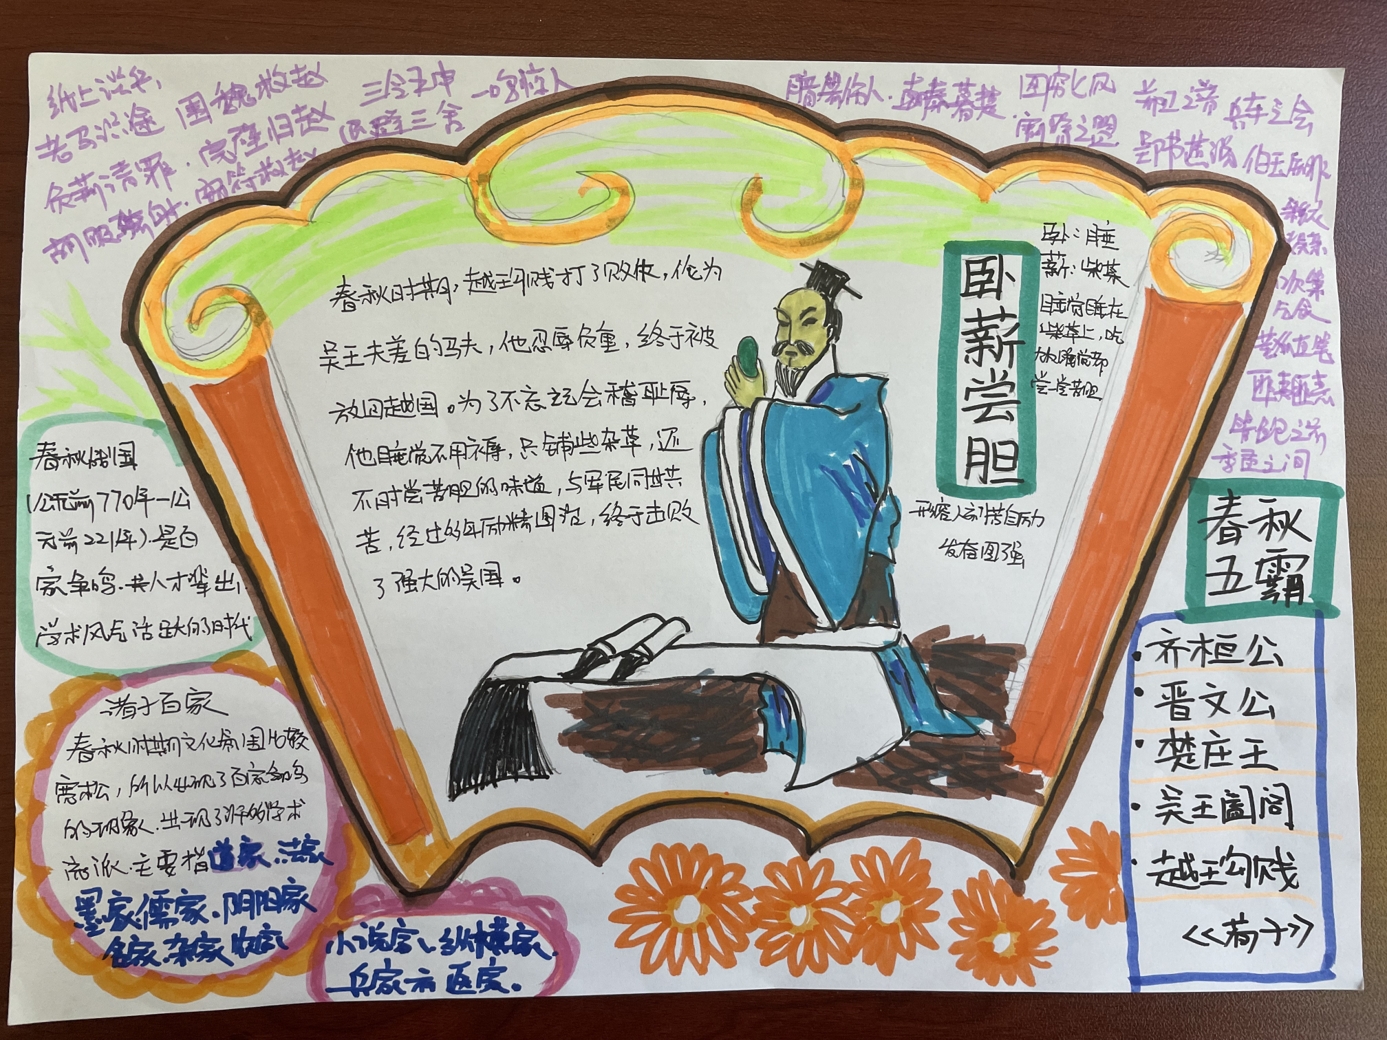 纸上谈兵,
老马识途 围魏救赵 三令五申 一鸣惊人
负荆请罪. 完璧归赵 退避三舍
胡服骑射. 窃符救赵
暗箭伤人. 朝秦暮楚
图穷匕见
兵车之会
春秋时期,越王勾践打了败仗,沦为
吴王夫差的马夫,他忍辱负重,终于被
放回越国。为了不忘记会稽耻辱,
他睡觉不用褥,只铺些杂草,还
不时尝苦胆的味道,与军民同甘共
苦,经过10年励精图治,终于击败
了强大的吴国。
卧薪尝胆
卧:睡
薪:柴草
睡觉睡在
柴草上,吃
饭睡觉都
尝尝苦胆
形容人刻苦自励
发奋图强
春秋战国
(公元前770年—公
元前221年).是百
家争鸣.共人才辈出,
学术风气活跃的时代
诸子百家
春秋时期文化氛围比较
宽松,所以出现了百家争鸣
的现象.出现了许多学术
流派.主要指道家.法家
墨家.儒家.阴阳家
名家.杂家.农家
小说家、纵横家.
兵家 医家.
春秋
五霸
·齐桓公
·晋文公
·楚庄王
·吴王阖闾
·越王勾践
<<荀子>>